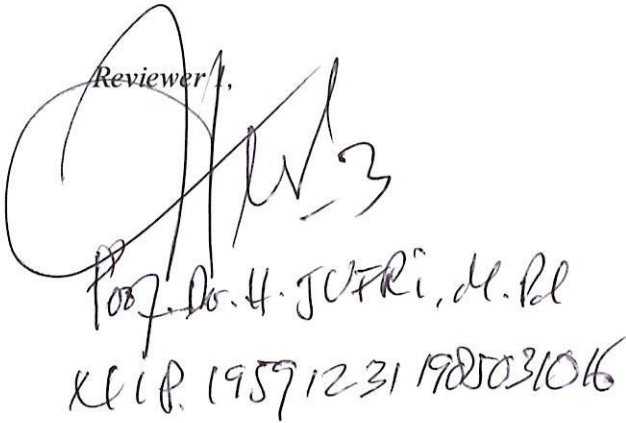 Reviewer 1,
Prof. Dr. H. JUFRi, M.Pd
NIP. 19591231 1985031016